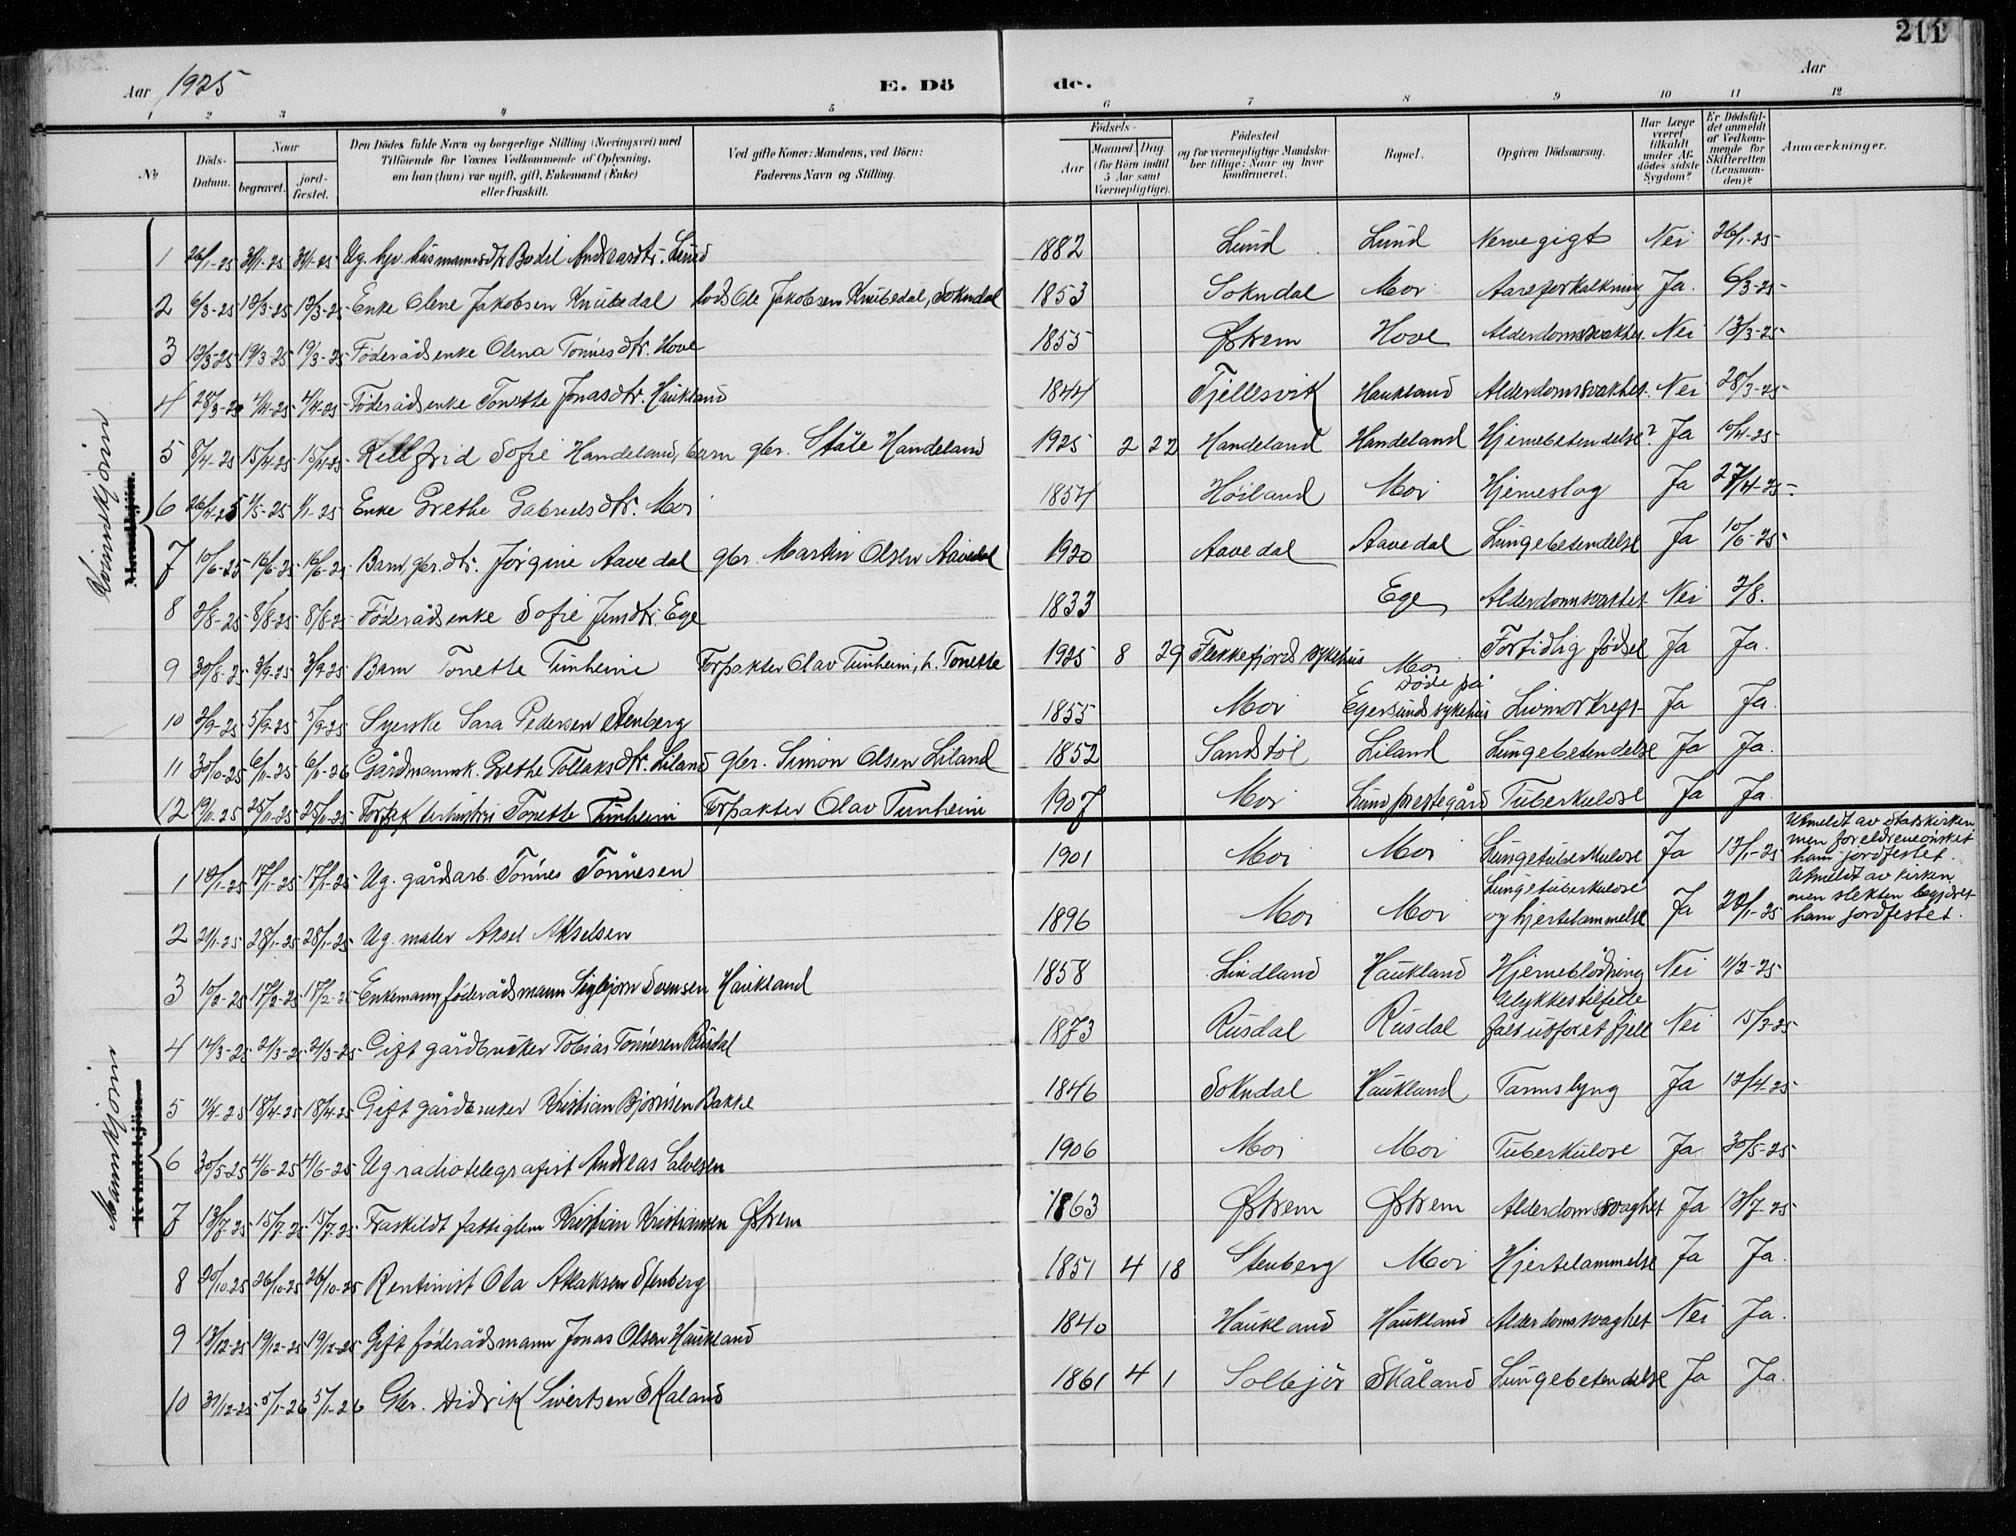 211
Aar 1925 E. Dö de. Aar
1 2 3 4 5 6 7 8 9 10 11 12
№ Döds-Datum. Naar begravet. jord-fæstet. Den Dödes fulde Navn og borgerlige Stilling (Næringsvei) med Tilföiende for Voxnes Vedkommende af Oplysning, om han (hun) var ugift, gift, Enkemand (Enke) eller fraskilt. Ved gifte Koner: Mandens, ved Börn: Faderens Navn og Stilling. Födsels- Aar Maaned Dag (for Börn indtil 5 Aar samt Værnepligtige). Födested og for værnepligtige Mandskaber tillige: Naar og hvor konfirmeret. Bopæl. Opgiven Dödsaarsag. Har Læge været tilkaldt under Afdödes sidste Sygdom? Er Dödsfaldet anmeldt af Vedkommende for Skifteretten (Lensmanden)? Anmærkninger.
Kvinnekjønn
Mandkjön.
1 26/1-25 31/1-25 31/1-25 Ug. hjv. husmannsdtr Bodil Andreasdtr. Lund 1882 Lund Lund Nervegigt Nei 26/1-25
2 6/3-25 12/3-25 12/3-25 Enke Olene Jakobsen Knubedal lods Ole Jakobsen Knubedal, Sokndal 1853 Sokndal Moi Aareforkalkning Ja 6/3-25
3 13/3-25 19/3-25 19/3-25 Føderådsenke Olena Tønnesdtr. Hove 1855 Østrem Hove Alderdomssvakhet Nei 13/3-25
4 28/3-25 4/4-25 4/4-25 Føderådsenke Tonette Jonasdtr. Haukland 1844 Fjellesvik Haukland Alderdomssvakhet. Nei 28/3-25
5 8/4-25 15/4-25 15/4-25 Kellfrid Sofie Handeland, barn gbr. Ståle Handeland 1925 2 22 Handeland Handeland Hjernebetendelse? Ja 10/4-25
6 26/4-25 1/5-25 1/5-25 Enke Grethe Gabrielsdtr. Moi 1854 Høiland Moi Hjerneslag Ja 27/4-25
7 10/6-25 16/6-25 16/6-25 Barn, gbr.dtr. Jørgine Aavedal gbr. Martin Olsen Aavedal 1920 Aavedal Aavedal Lungebetendelse Ja 10/6-25
8 2/8-25 8/8-25 8/8-25 Føderådsenke Sofie Jensdtr. Ege 1833 Ege Alderdomsvakhet Nei 2/8.
9 30/8-25 3/9-25 3/9-25 Barn Tonette Tunheim Forpakter Olav Tunheim, h. Tonette 1925 8 29 Flekkefjords sykehus Moi Fortidlig fødsel Ja Ja.
10 2/9-25 5/9-25 5/9-25 Syerske Sara Pedersen Stenberg 1855 Moi Døde på Egersund sykehus Livmorkreft Ja Ja.
11 30/10-25 6/11-25 6/11-26 Gårdmannsk. Grethe Tollaksdtr. Liland gbr. Simon Olsen Liland 1852 Sandstøl Liland Lungebetendelse Ja Ja.
12 19/11-25 25/11-25 25/11-25 Forpakterhustru Tonette Tunheim Forpakter Olav Tunheim 1907 Moi Lund prestegård Tuberkulose Ja Ja.
Mannkjønn
Kvindekjön.
1 12/1-25 17/1-25 17/1-25 Ug. gårdsarb. Tønnes Tønnesen 1901 Moi Moi Lungetuberkulose Ja 13/1-25 Utmeldt av statskirken men foreldrene ønsket ham jordfestet.
2 21/1-25 28/1-25 28/1-25 Ug. maler Aksel Akselsen 1896 Moi Moi Lungetuberkulose og hjertelammelse Ja 22/1-25 Utmeldt av kirken men slekten begjæret ham jordfestet.
3 10/2-25 17/2-25 17/2-25 Enkemann, føderådsmann Sigbjørn Svensen Haukland 1858 Lindland Haukland Hjerneblødning Nei 11/2-25
4 14/3-25 21/3-25 21/3-25 Gift gårdbruker Tobias Tønnesen Rusdal 1873 Rusdal Rusdal Ulykkestilfelle falt utfor et fjell Nei 15/3-25
5 11/4-25 18/4-25 18/4-25 Gift gårdbruker Kristian Bjørnsen Bakke 1846 Sokndal Haukland Tarmslyng Ja 12/4-25
6 30/5-25 4/6-25 4/6-25 Ug. radiotelegrafist Andreas Salvesen 1906 Moi Moi Tuberkulose Ja 30/5-25
7 13/7-25 15/7-25 15/7-25 Fraskildt fattiglem Kristian Kristiansen Østrem 1863 Østrem Østrem Alderdomssvaghet Ja 13/7-25
8 20/10-25 26/10-25 26/10-25 Rentinist Ola Aslaksen Stenberg 1851 4 18 Stenberg Moi Hjertelammelse Ja Ja.
9 13/12-25 19/12-25 19/12-25 Gift føderådsmann Jonas Olsen Haukland 1840 Haukland Haukland Alderdomsvaghet Nei Ja.
10 31/12-25 5/1-26 5/1-26 Gbr. Didrik Sivertsen Skåland 1861 4 1 Solbjør Skåland Lungebetendelse Ja Ja.